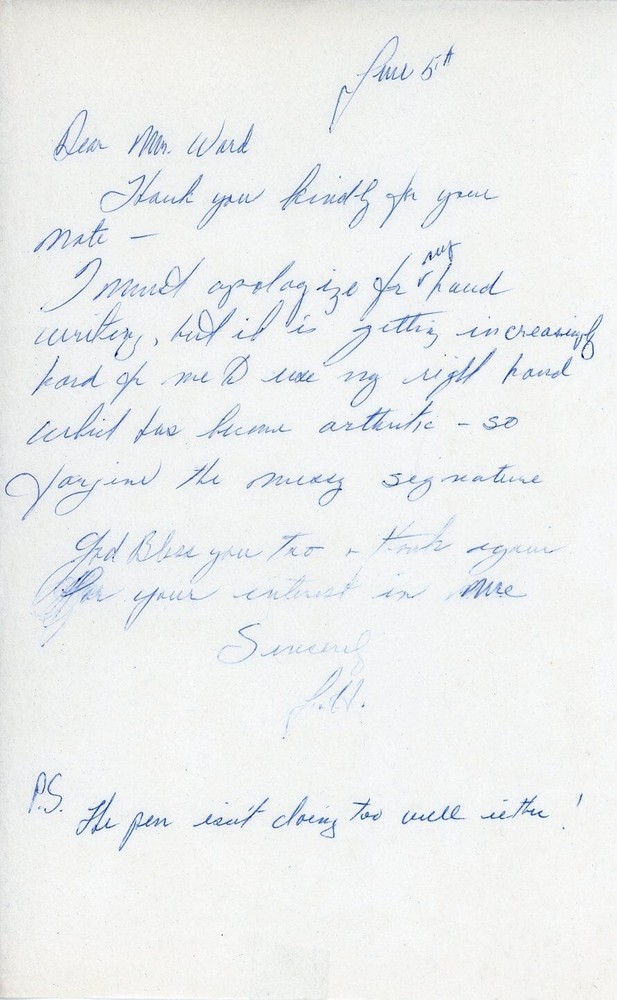 June 5th
Dear Mr. Ward
Thank you kindly for your
note —
I must apologize for my hand
writing, but it is getting increasingly
hard for me to use my right hand
which has become arthritic – so
forgive the messy signature
God Bless you too + thank again
for your interest in me
Sincerely
J.H.
P.S. The pen isn't doing too well iether!